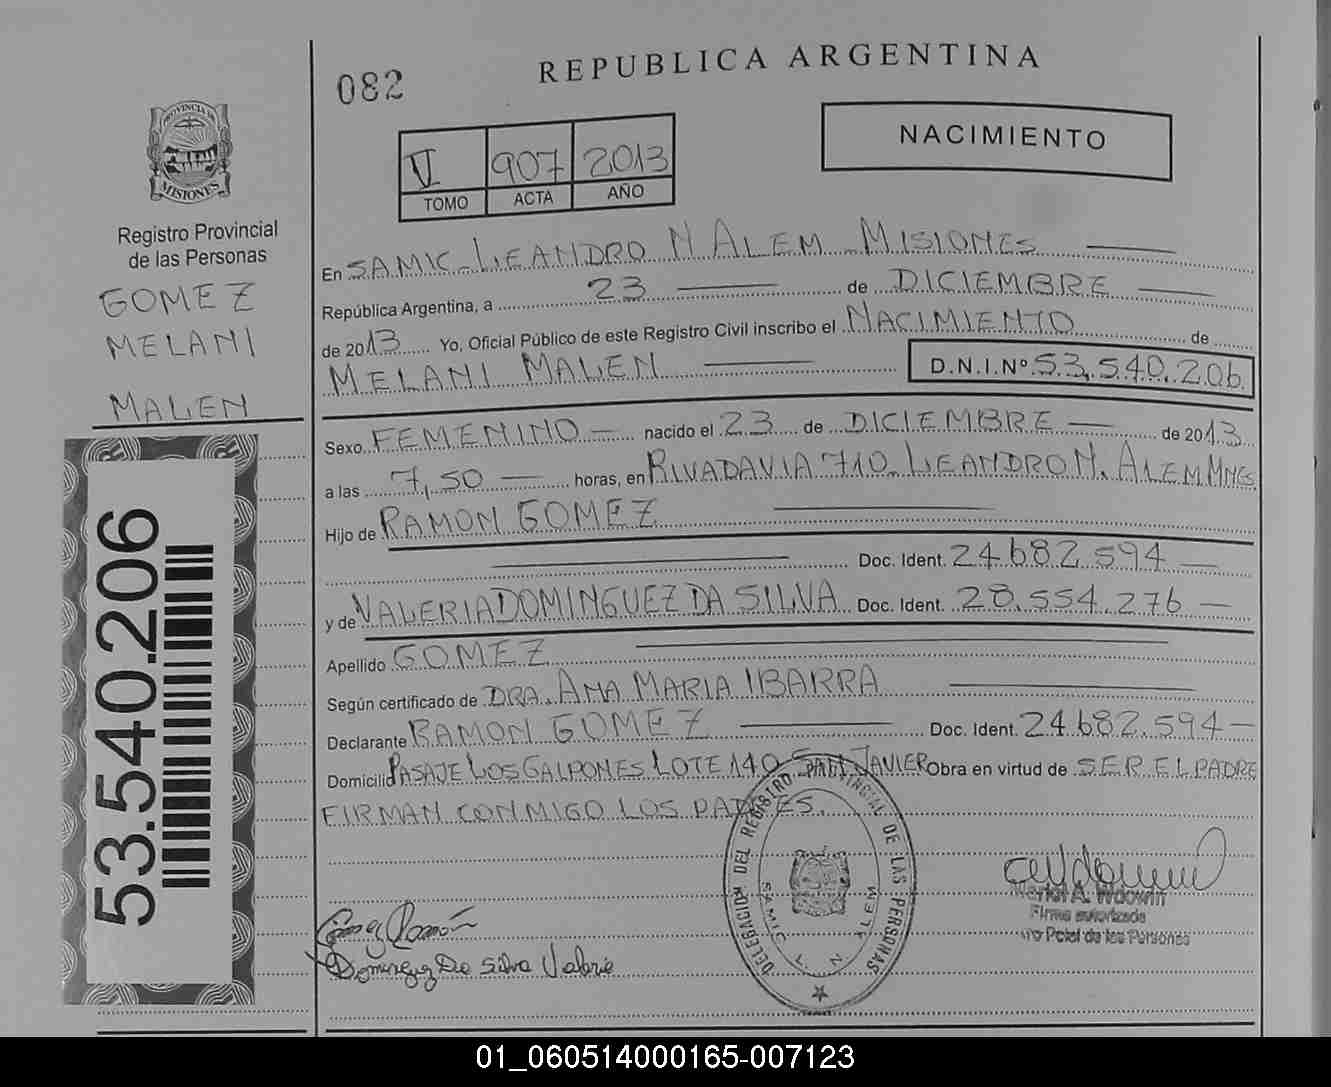 082
REPUBLICA ARGENTINA
NACIMIENTO
VI 907 2013
TOMO ACTA AÑO
PROVINCIA DE
MISIONES
Registro Provincial
de las Personas
GOMEZ
MELANI
MALEN
53.540.206
En SAMIC LEANDRO N ALEM MISIONES
República Argentina, a 23 de DICIEMBRE
de 2013 Yo, Oficial Público de este Registro Civil inscribo el NACIMIENTO de
MELANI MALEN D.N.I.Nº 53.540.206
Sexo FEMENINO nacido el 23 de DICIEMBRE de 2013
a las 7,50 horas, en RIVADAVIA 710 LEANDRO N. ALEM MNES
Hijo de RAMON GOMEZ
Doc. Ident. 24.682.594
y de VALERIA DOMINGUEZ DA SILVA Doc. Ident. 28.554.276
Apellido GOMEZ
Según certificado de DRA. ANA MARIA IBARRA
Declarante RAMON GOMEZ Doc. Ident. 24.682.594
Domicilio PASAJE LOS GALPONES LOTE 140 SAN JAVIER Obra en virtud de SER EL PADRE
FIRMAN CONMIGO LOS PADRES.
DELEGACION DEL REGISTRO PROVINCIAL DE LAS PERSONAS
SAMIC L. N. ALEM
A. Wdowin
Firma autorizada
Pcial de las Personas
Gomez Ramón
Dominguez Da Silva Valeria
01_060514000165-007123